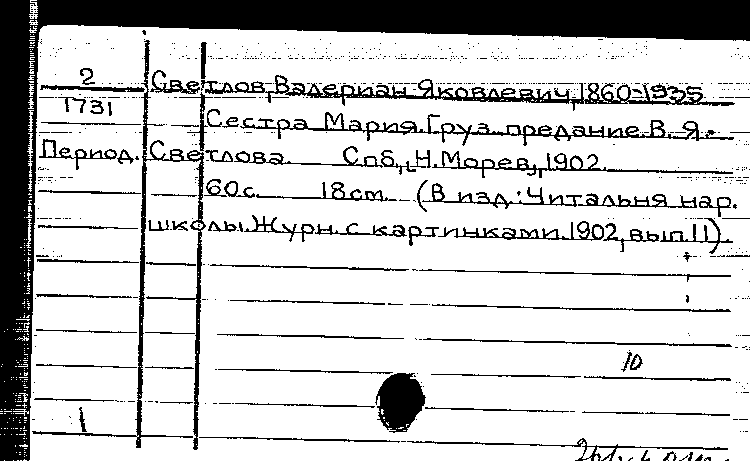 2 Светлов, Валериан Яковлевич, 1860-1935
1731
Сестра Мария. Груз. предание. В. Я.
Период. Светлова. Спб., Н. Морев, 1902.
60 с. 18 см. (В изд.: Читальня нар.
школы. Журн. с картинками. 1902, вып. 11).
10
1